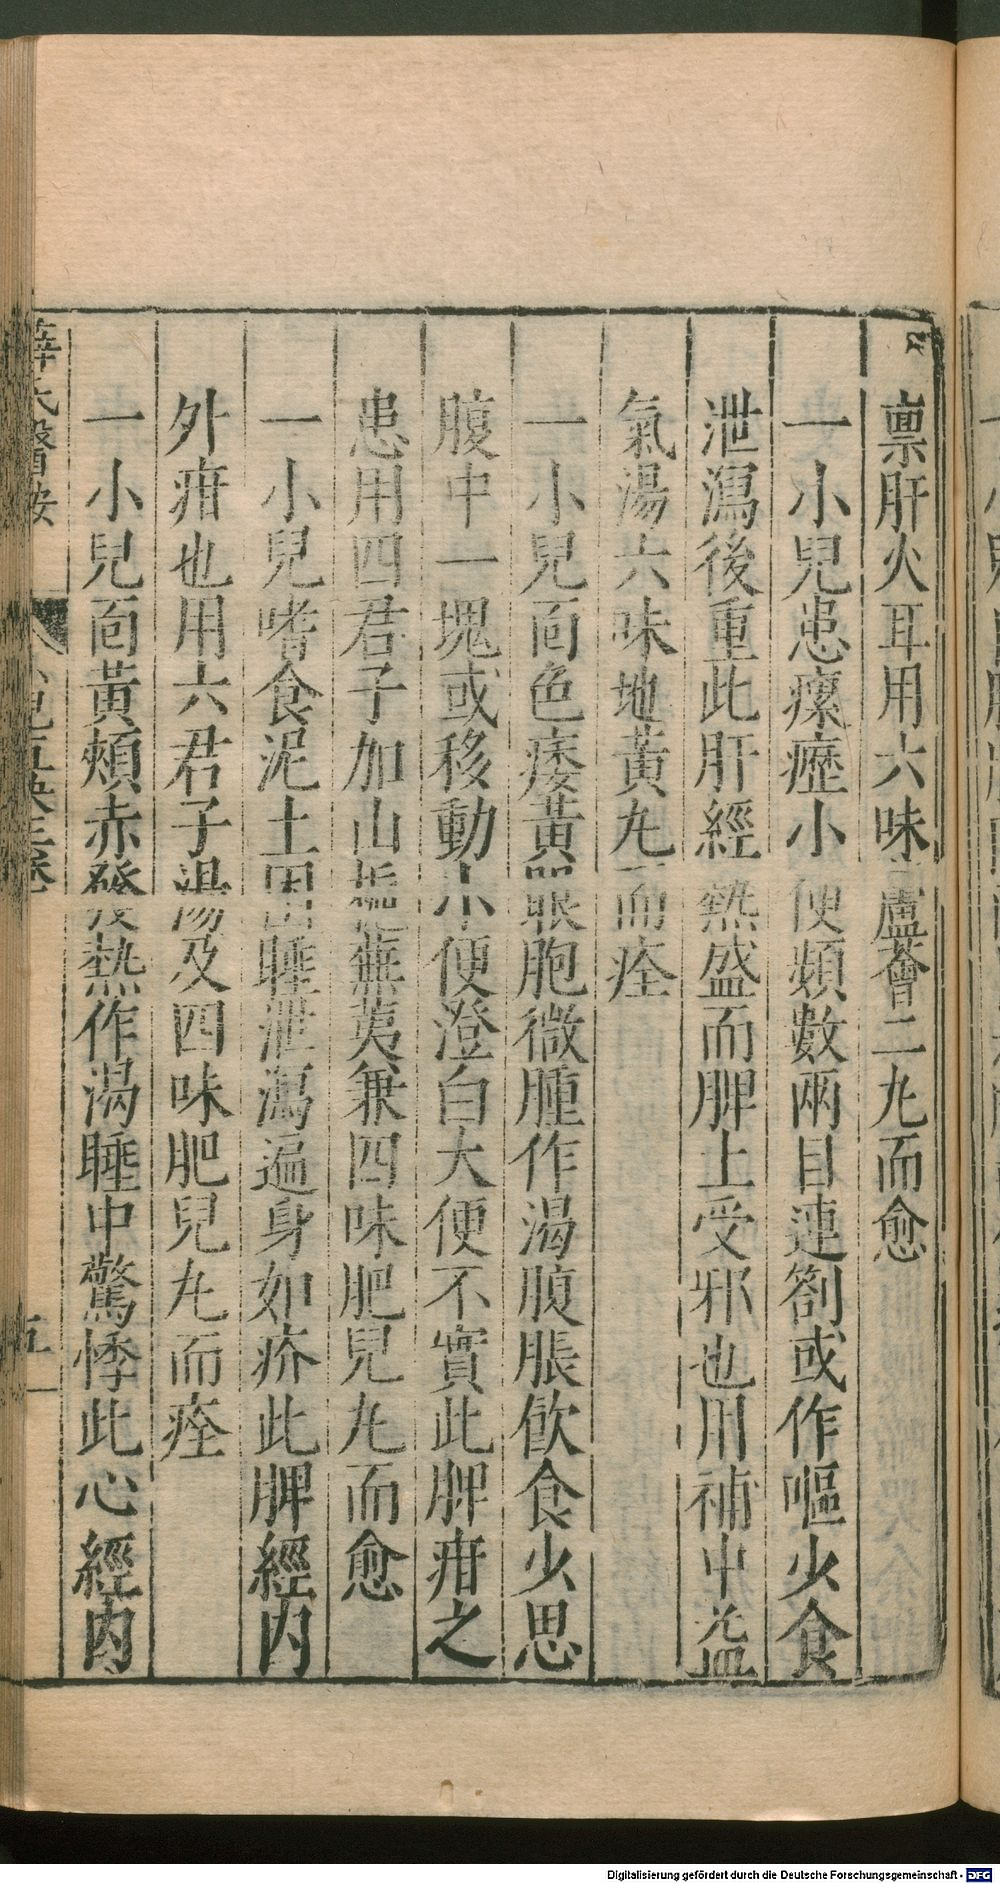 禀肝火耳用六味蘆薈二九而愈
一小兒患瘰癧小便頻數兩目連劄或作嘔少食
泄瀉後重此肝經熱盛而脾土受邪也用補中益
氣湯六味地黃九而痊
一小兒面色痿黃眼胞微腫作渴腹脹飲食少思
腹中一塊或移動小便澄白大便不實此脾疳之
患用四君子加山梔蕪荑兼四味肥兒九而愈
一小兒嗜食泥土困睡泄瀉遍身如疥此脾經內
外疳也用六君子湯及四味肥兒九而痊
一小兒面黃頰赤發熱作渴睡中驚悸此心經內
薛氏醫按
五
Digitalisierung gefördert durch die Deutsche Forschungsgemeinschaft - DFG